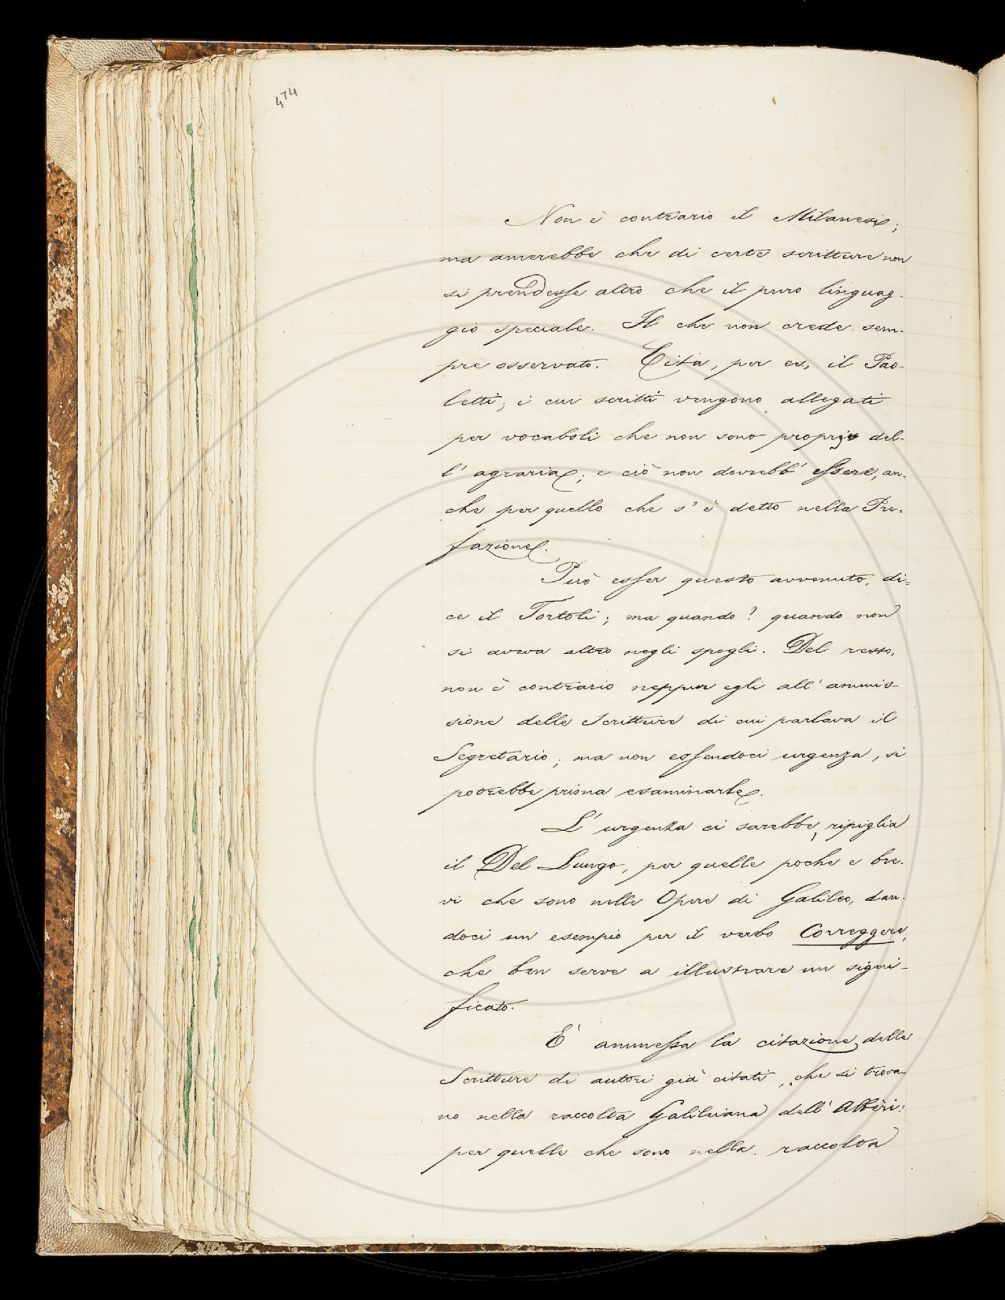 474
Non è contrario il Milanesi;
ma amerebbe che di certe scritture non
si prendesse altro che il puro linguag-
gio speciale. Il che non crede sem-
pre osservato. Cita, per es, il Pao-
letti; i cui scritti vengono allegati
per vocaboli che non sono proprj del-
l'agraria; e ciò non dovrebb'essere, an-
che per quello che s'è detto nella Pre-
fazione.
Può esser questo avvenuto, di-
ce il Tortoli; ma quando? quando non
si aveva altro negli spogli. Del resto,
non è contrario neppur egli all'ammis-
sione delle Scritture di cui parlava il
Segretario; ma non essendoci urgenza, si
potrebbe prima esaminarle.
L'urgenza ci sarebbe, ripiglia
il Del Lungo, per quelle poche e bre-
vi che sono nelle Opere di Galileo, dan-
doci un esempio per il verbo Correggere,
che ben serve a illustrare un signi-
ficato.
È ammessa la citazione delle
Scritture di autori già citati, che si trova-
no nella raccolta Galileiana dell'Albèri:
per quelle che sono nella raccolta